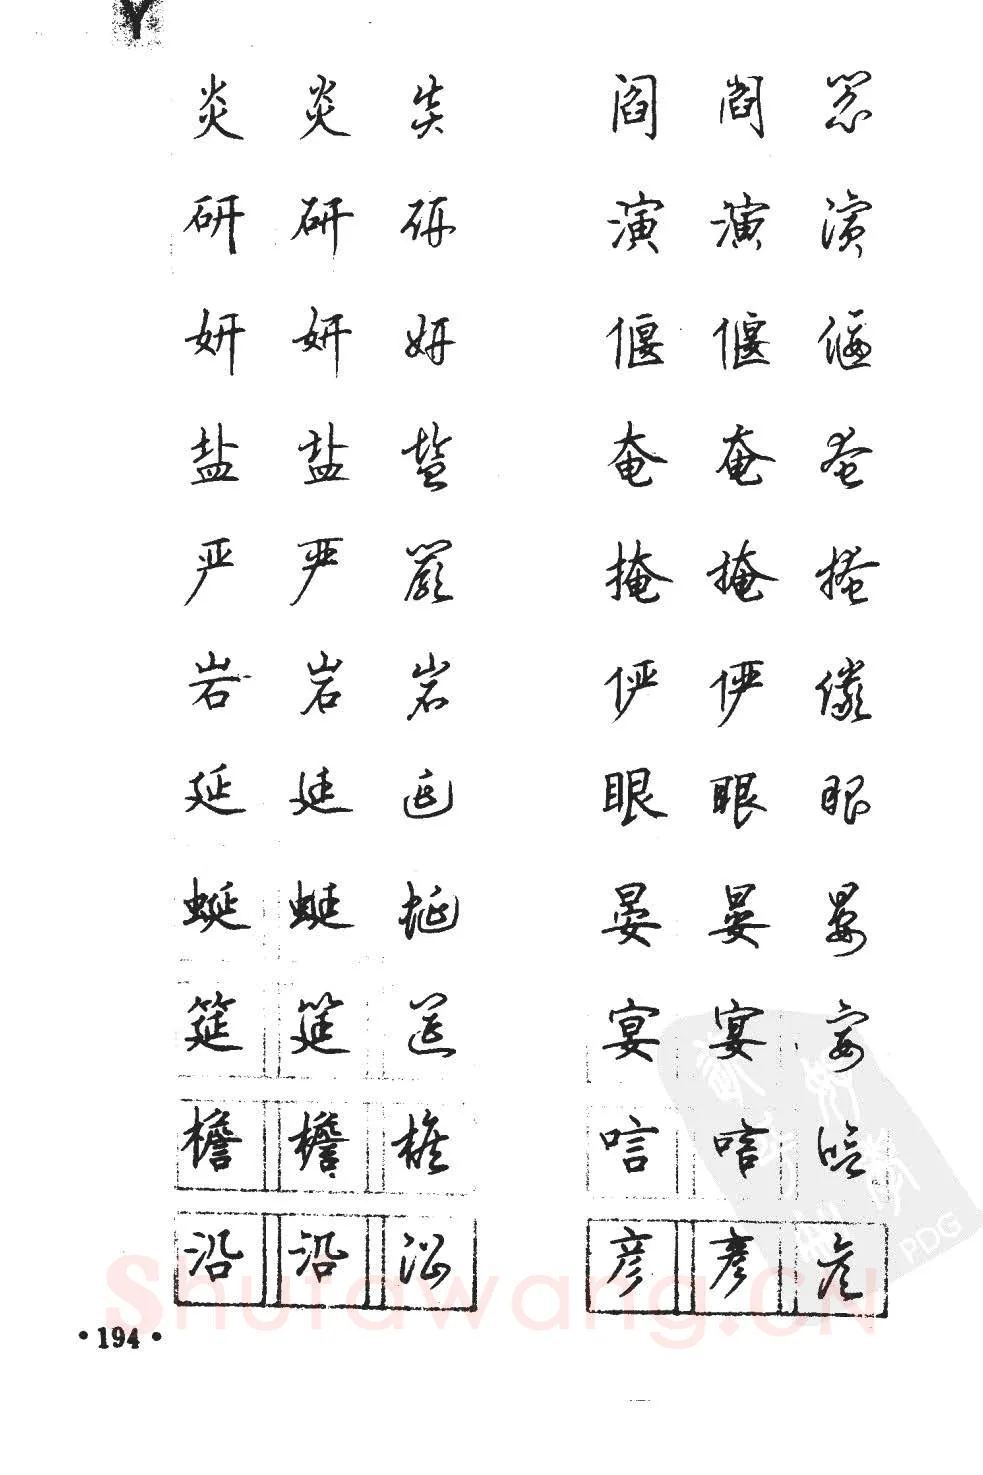 Y
炎 炎 炎 阎 阎 阎
研 研 研 演 演 演
妍 妍 妍 偃 偃 偃
盐 盐 鹽 奄 奄 奄
严 严 嚴 掩 掩 掩
岩 岩 岩 俨 俨 儼
延 延 延 眼 眼 眼
蜒 蜒 蜒 晏 晏 晏
筵 筵 筵 宴 宴 宴
檐 檐 檐 唁 唁 唁
沿 沿 沿 彦 彦 彦
PDG
Shufawang.CN
·194·